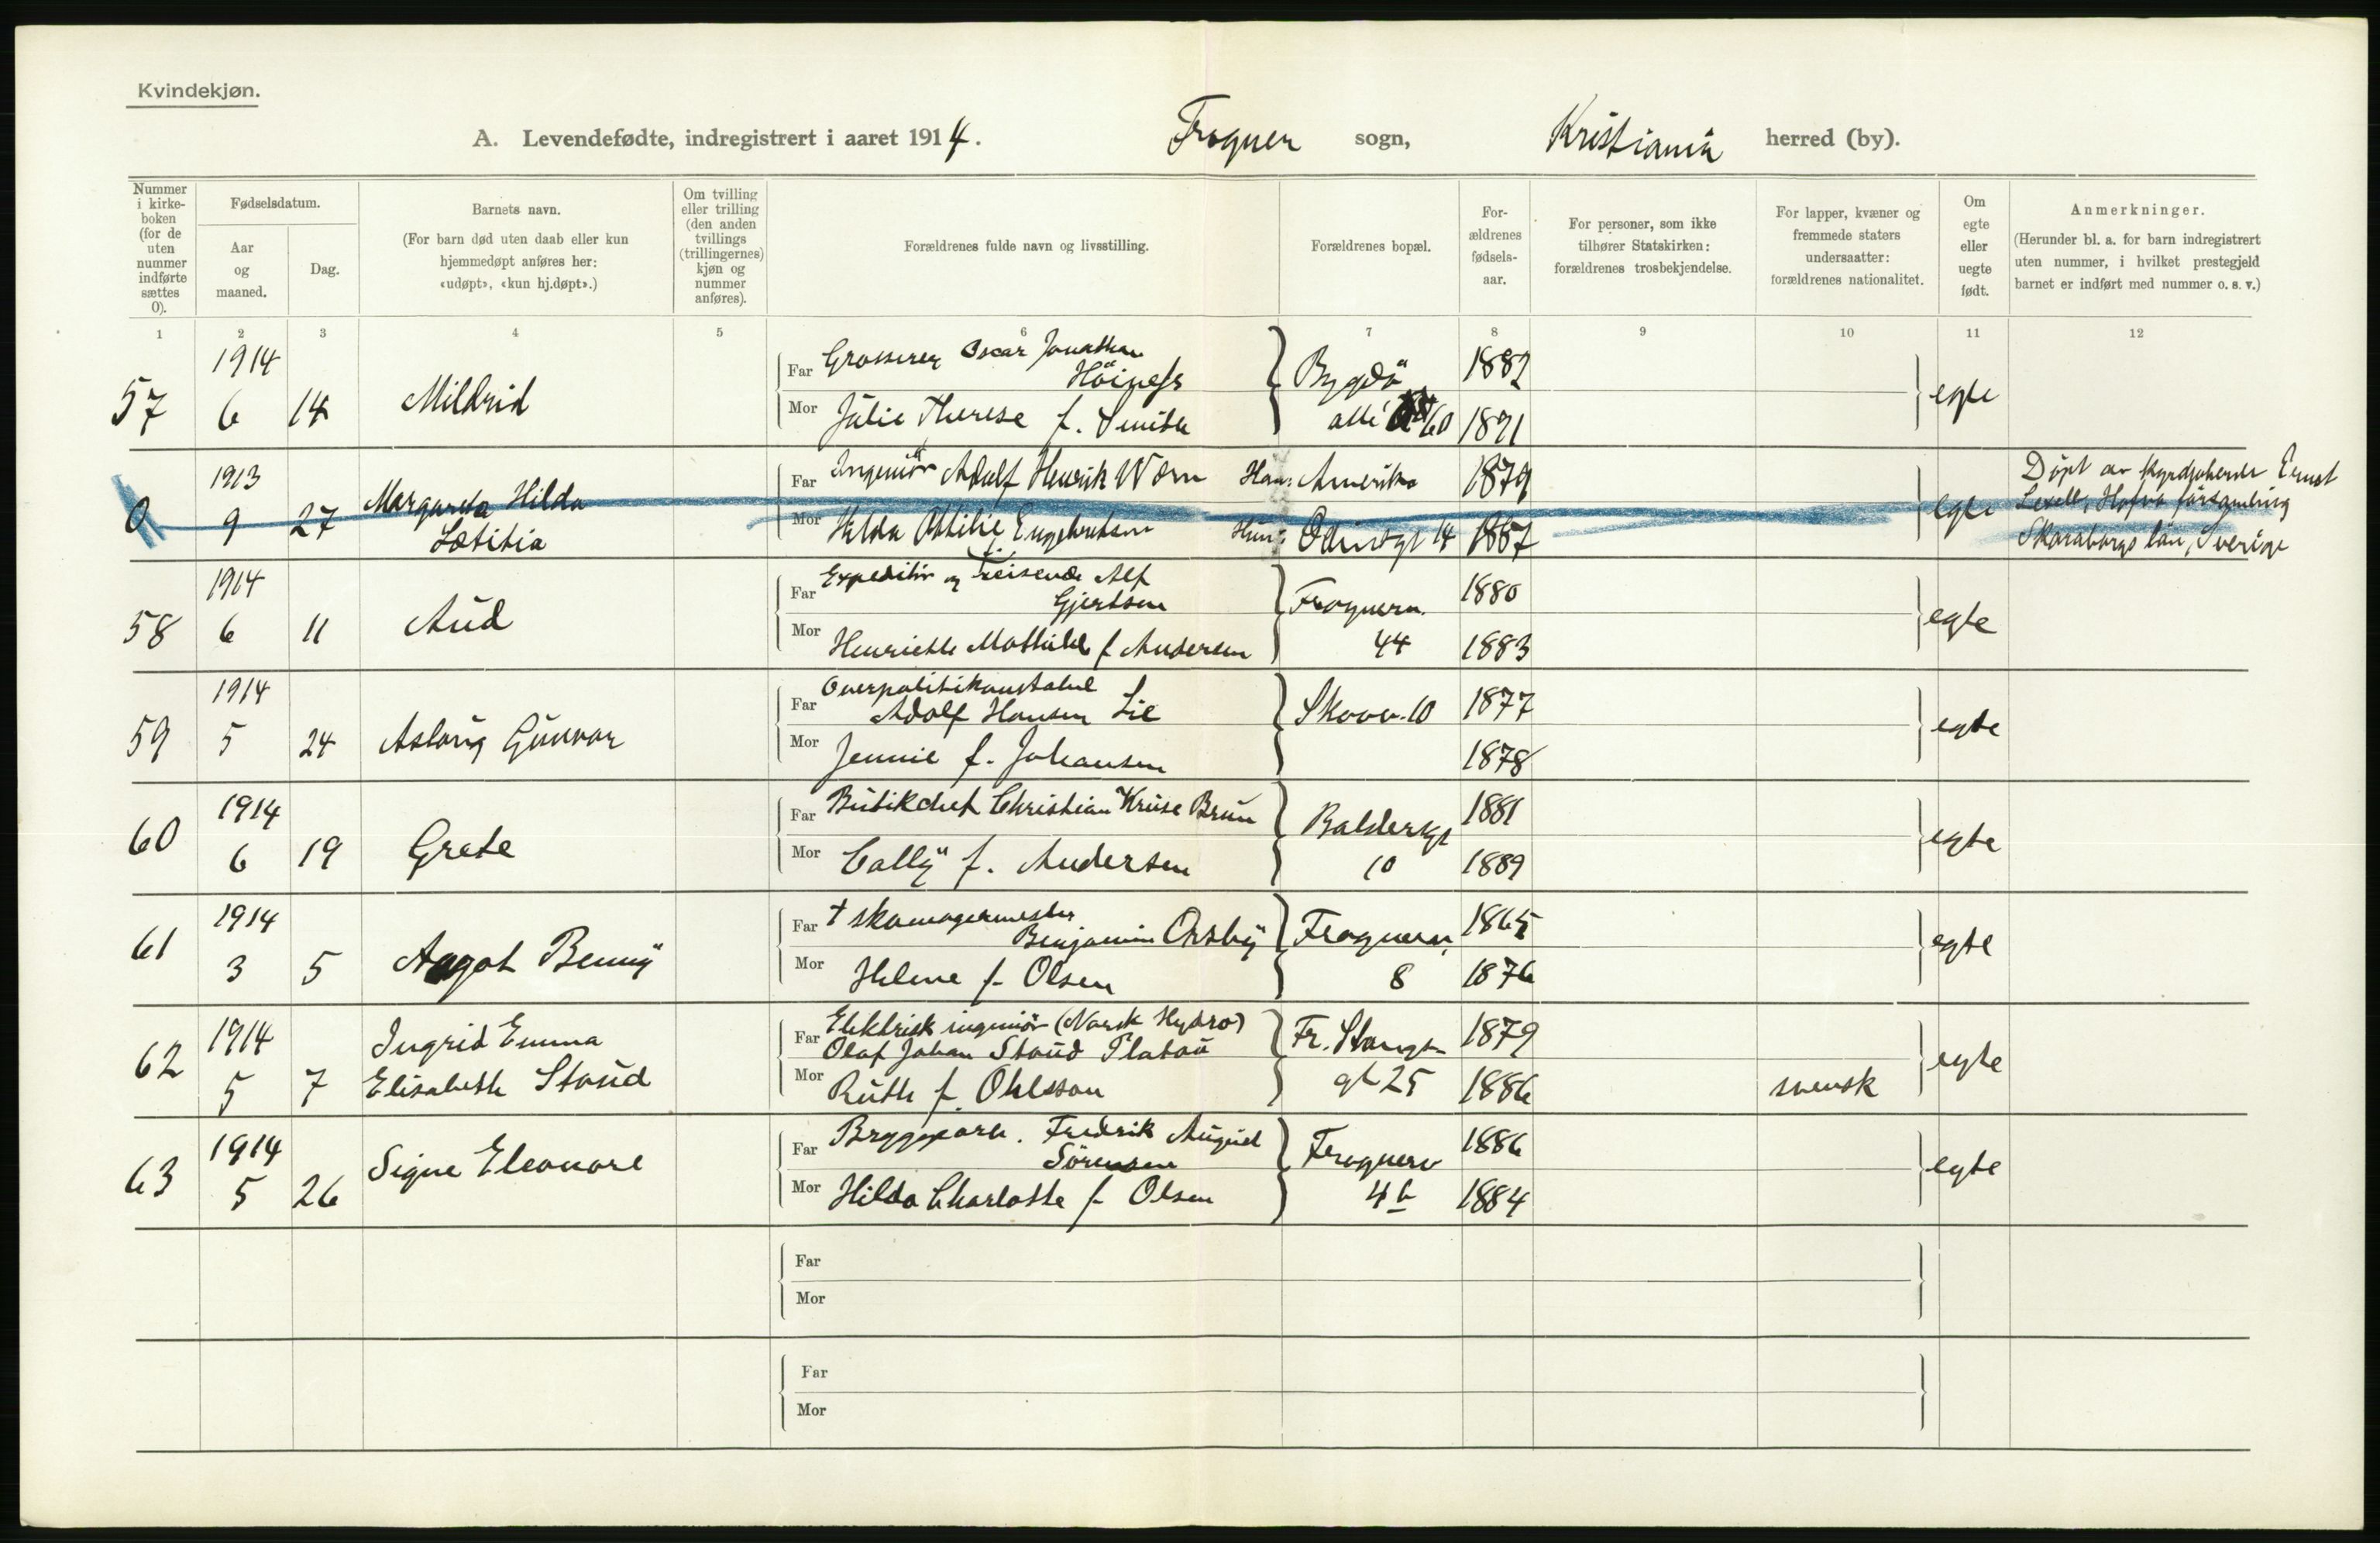 Kvindekjøn.
A. Levendefødte, indregistrert i aaret 1914. Frogner sogn, Kristiania herred (by).
Nummer i kirke-boken (for de uten nummer indførte sættes 0).
Fødselsdatum.
Aar og maaned.
Dag.
Barnets navn.
(For barn død uten daab eller kun hjemmedøpt anføres her: «udøpt», «kun hj.døpt».)
Om tvilling eller trilling (den anden tvillings (trillingernes) kjøn og nummer anføres).
Forældrenes fulde navn og livsstilling.
Forældrenes bopæl.
For-ældrenes fødsels-aar.
For personer, som ikke tilhører Statskirken: forældrenes trosbekjendelse.
For lapper, kvæner og fremmede staters undersaatter: forældrenes nationalitet.
Om egte eller uegte født.
Anmerkninger.
(Herunder bl. a. for barn indregistrert uten nummer, i hvilket prestegjeld barnet er indført med nummer o. s. v.)
1 2 3 4 5 6 7 8 9 10 11 12
1914 Far Grosserer Oscar Jonathan Höiness Bygdö 1882
57 6 14 Mildrid Mor Julie Therese f. Smith allé 60 1891 egte
1913 Far Ingeniör Adolf Henrik Worn Han: Amerika 1879 Döpt av Kyrkoherde Ernst
0 9 27 Margareta Hilda Lætitia Mor Hilda Ottilie f. Engebretsen Hun: Odinsgt 14 1887 egte Lexell, Hofva församling
Skaraborgs län, Sverige
1914 Far Expeditör og reisende Alf Gjertsen Frognerv. 1880
58 6 11 Aud Mor Henriette Mathilde f Andersen 44 1883 egte
1914 Far Overpolitikonstabel Adolf Hansen Lie Skovv. 10 1877
59 5 24 Aslaug Gunvor Mor Jennie f. Johansen 1878 egte
1914 Far Butikchef Christian Kruse Brun Baldersgt 1881
60 6 19 Grete Mor Cally f. Andersen 10 1889 egte
1914 Far † skomagermester Benjamin Orsby Frognerv. 1865
61 3 5 Aagot Benny Mor Helene f. Olsen 8 1876 egte
1914 Far Elektrisk ingeniör (Norsk Hydro) Olaf Johan Staud Platou Fr. Stangs 1879
62 5 7 Ingrid Emma Elisabeth Staud Mor Ruth f. Ohlsson gt 25 1886 svensk egte
1914 Far Bryggearb. Fredrik August Sörensen Frognerv 1886
63 5 26 Signe Eleonore Mor Hilda Charlotte f. Olsen 4 b 1884 egte
Far
Mor
Far
Mor